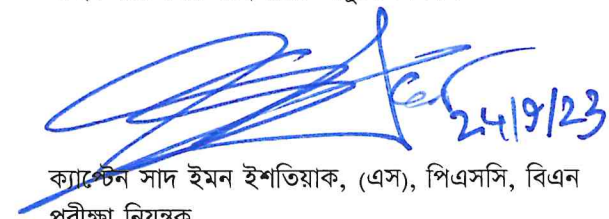 24/9/23
ক্যাপ্টেন সাদ ইমন ইশতিয়াক, (এস), পিএসসি, বিএন
পরীক্ষা নিয়ন্ত্রক